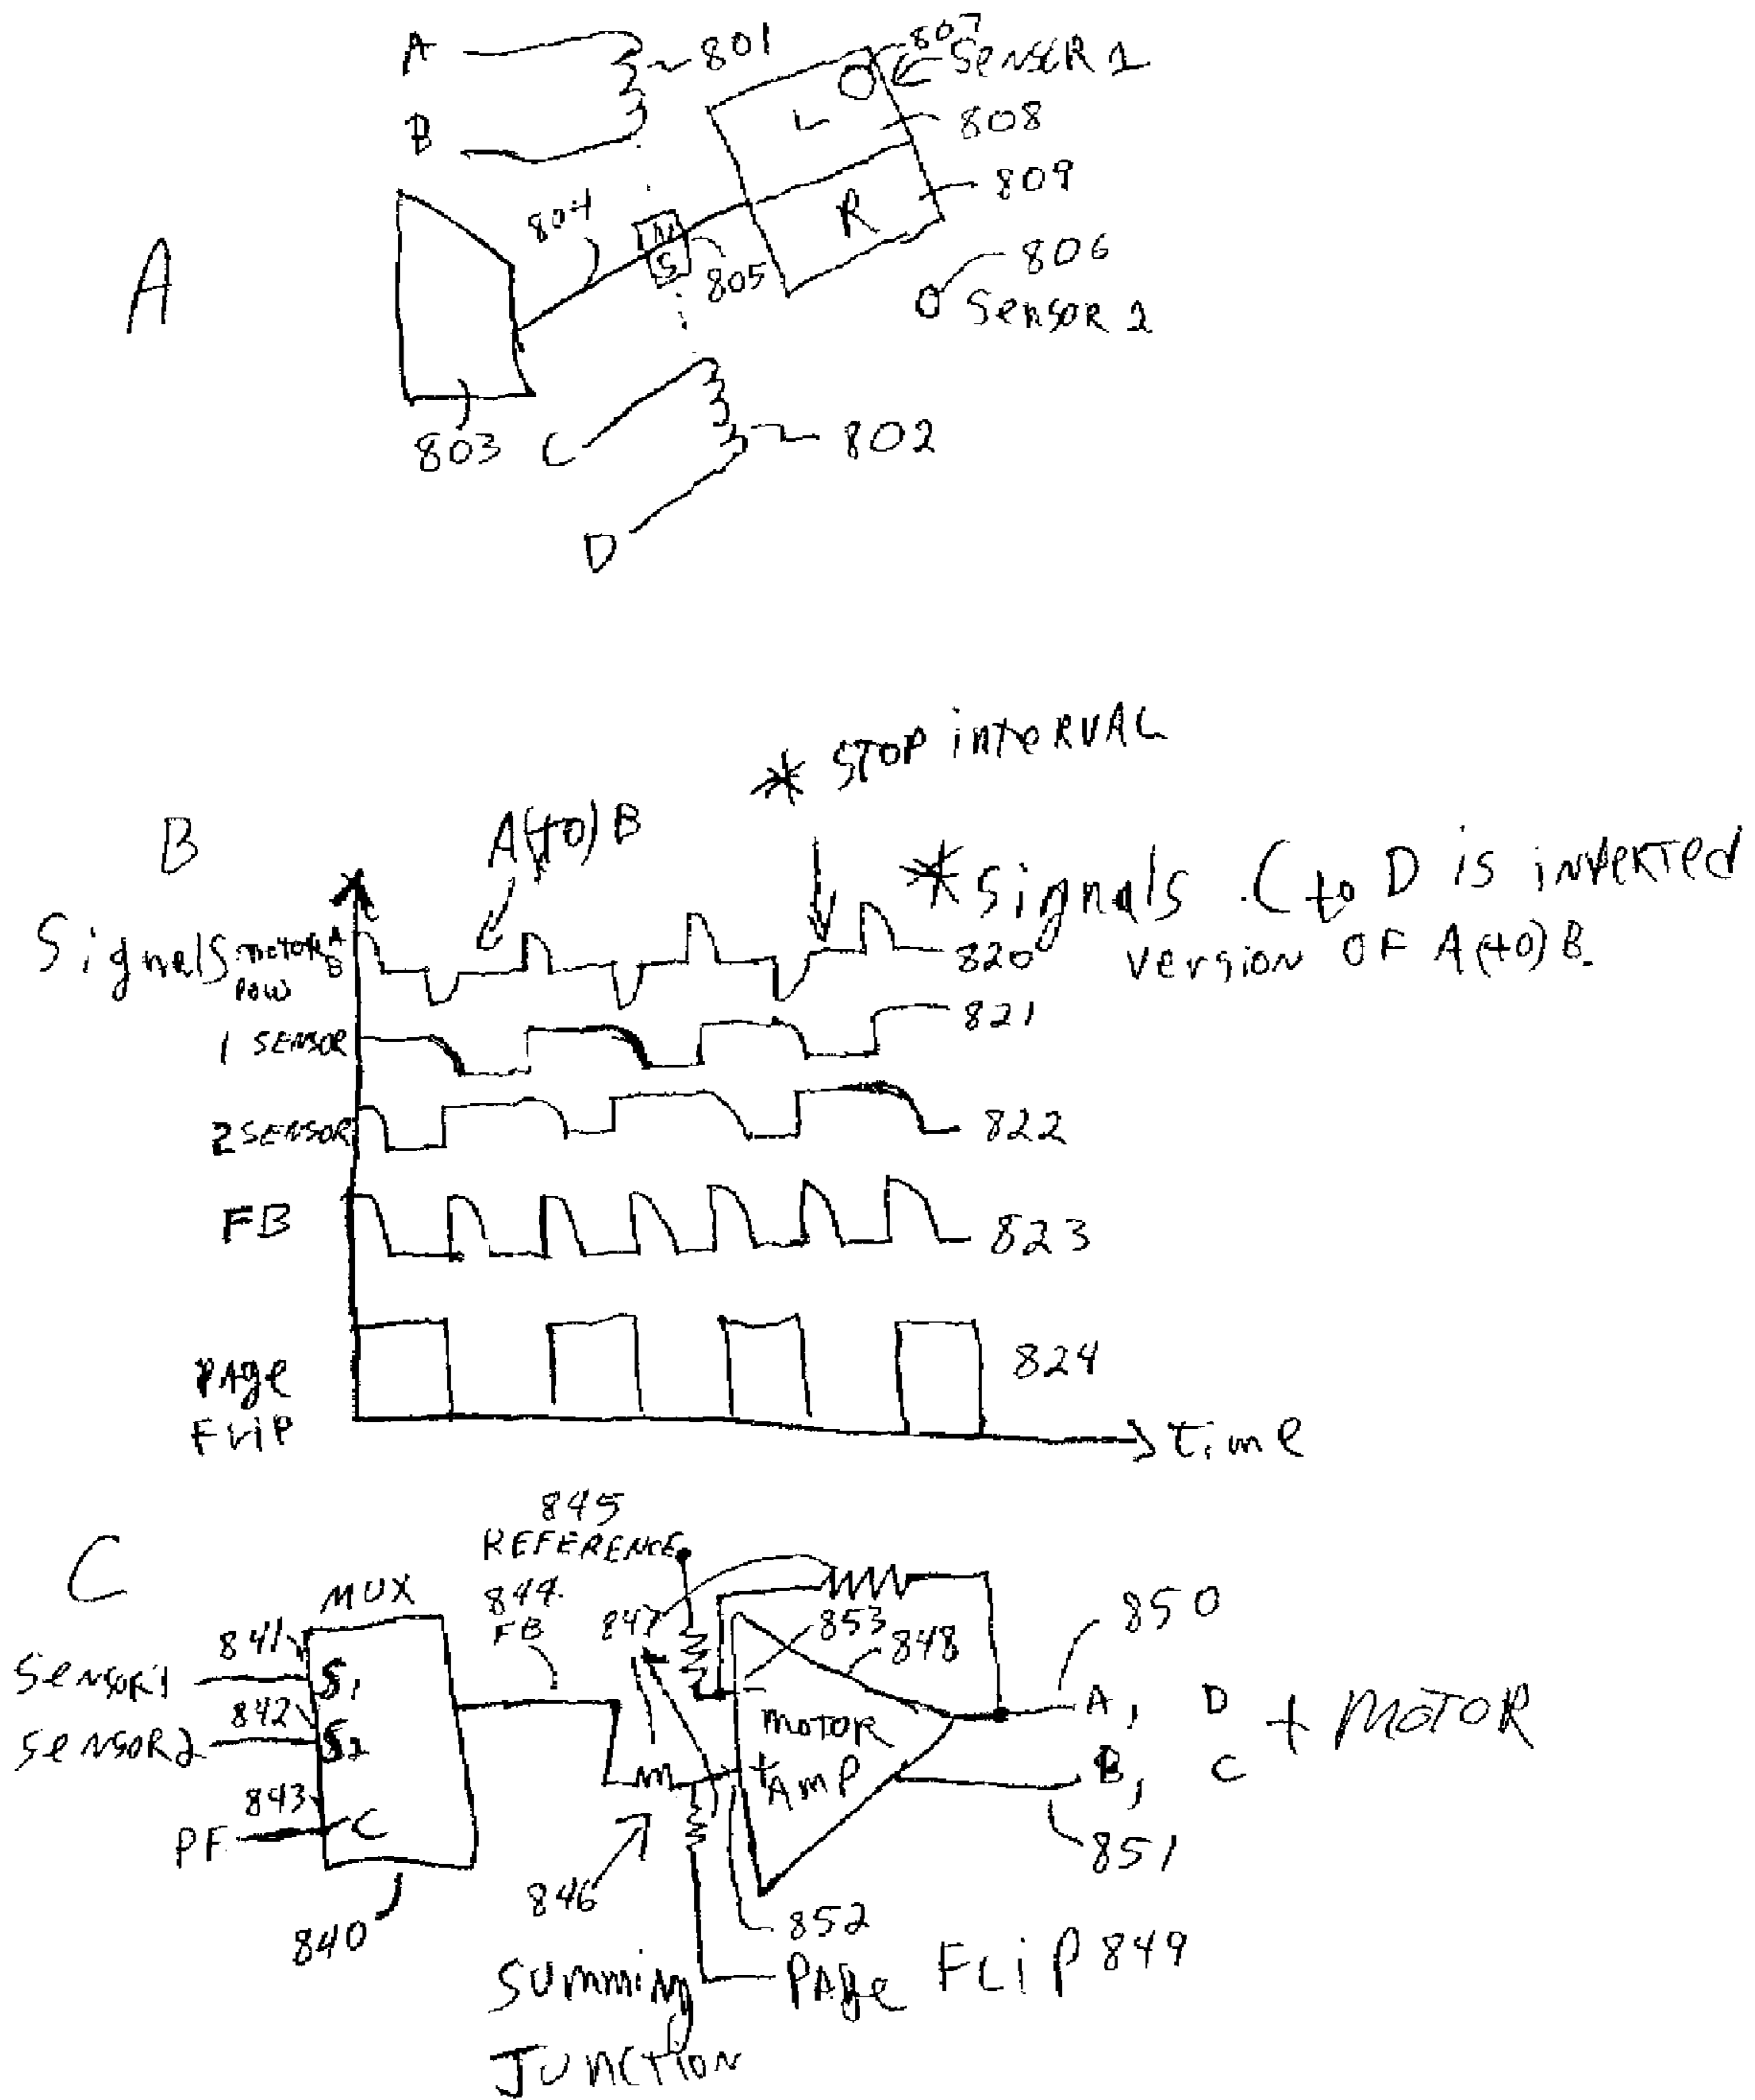 A
801
807
SENSOR 1
B
L
808
804
N
S
805
R
809
A
806
SENSOR 2
803
C
802
D
* STOP INTERVAL
B
A(to)B
* Signals C to D is inverted
version of A(to)B.
Signals motor A
B
Pow
820
1 SENSOR
821
2 SENSOR
822
FB
823
PAge
FLiP
824
time
C
845
REFERENCE
MUX
844
FB
847
853
848
850
SENSOR1
841
S1
SENSOR2
842
S2
PF
843
C
840
846
-
+
MOTOR
AMP
A, D
B, C
+ MOTOR
851
852
Summing
Junction
PAge FLiP 849